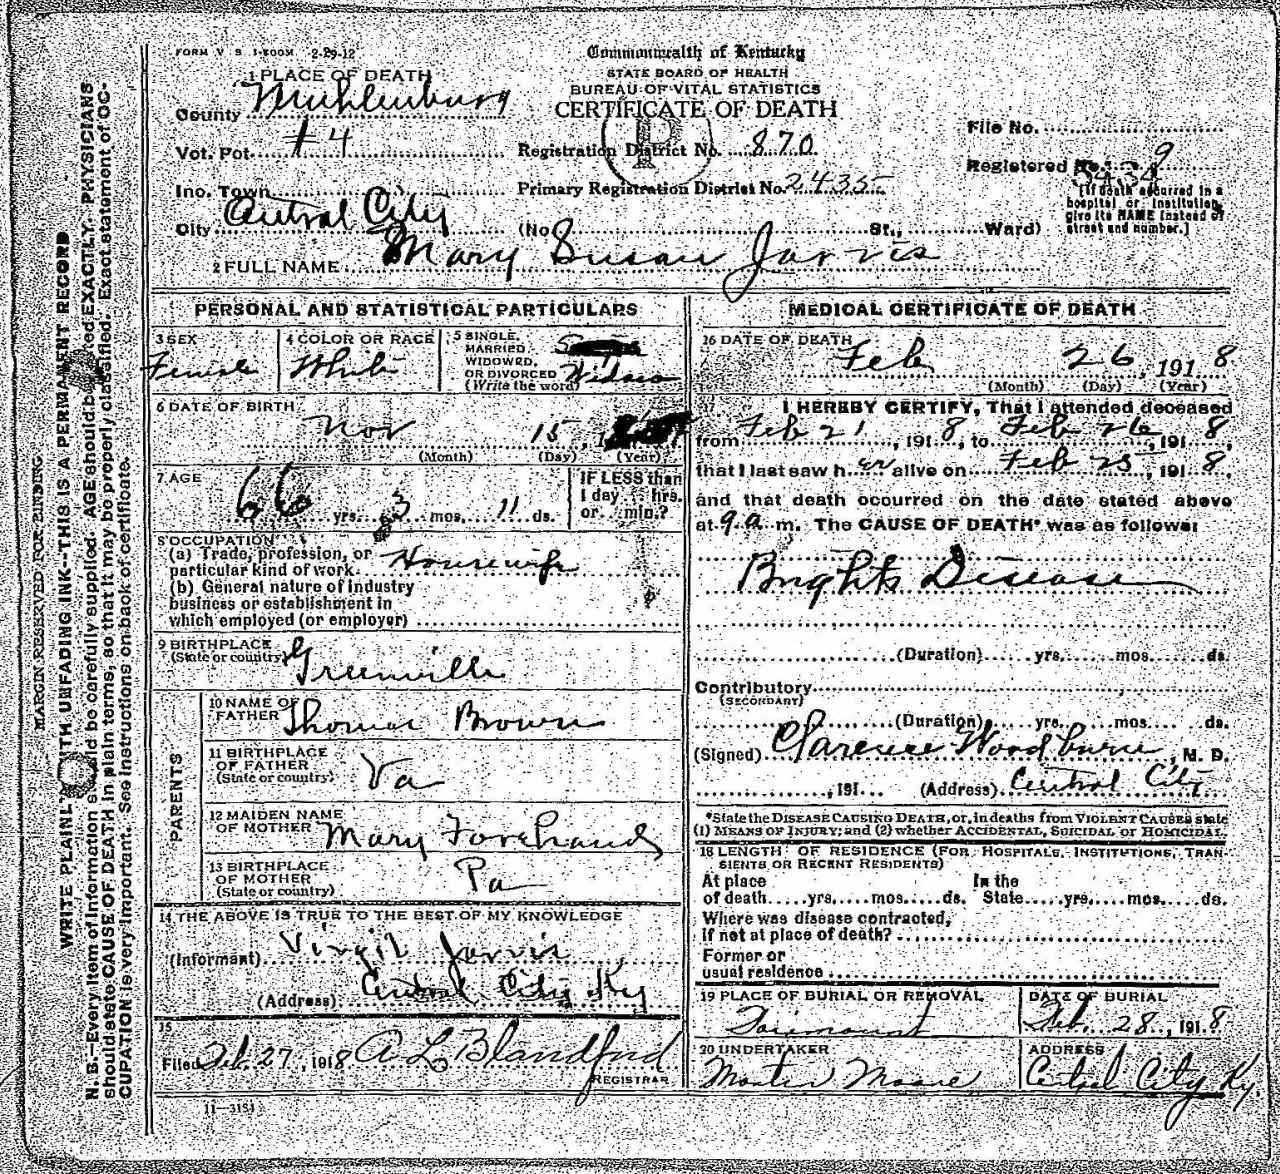 FORM V. S. 1-500M 2-29-12
Commonwealth of Kentucky
STATE BOARD OF HEALTH
BUREAU OF VITAL STATISTICS
CERTIFICATE OF DEATH
1 PLACE OF DEATH
County Muhlenburg
Vot. Pct. #4
Inc. Town
City Central City
Registration District No. 870
Primary Registration District No. 2435
(No. St., Ward)
File No.
Registered No. 9
[If death occurred in a
hospital or institution,
give its NAME instead of
street and number.]
2 FULL NAME Mary Susan Jarvis
PERSONAL AND STATISTICAL PARTICULARS
3 SEX
Female
4 COLOR OR RACE
White
5 SINGLE,
MARRIED,
WIDOWED,
OR DIVORCED
(Write the word) Widow
6 DATE OF BIRTH
Nov 15, 1
(Month) (Day) (Year)
7 AGE
66 yrs. 3 mos. 11 ds.
IF LESS than
1 day hrs.
or min.?
8 OCCUPATION
(a) Trade, profession, or
particular kind of work Housewife
(b) General nature of industry
business or establishment in
which employed (or employer)
9 BIRTHPLACE
(State or country) Greenville
PARENTS
10 NAME OF
FATHER Thomas Brown
11 BIRTHPLACE
OF FATHER
(State or country) Va
12 MAIDEN NAME
OF MOTHER Mary Forehand
13 BIRTHPLACE
OF MOTHER
(State or country) Pa
14 THE ABOVE IS TRUE TO THE BEST OF MY KNOWLEDGE
(Informant) Virgil Jarvis
(Address) Central City Ky
15
Filed Feb. 27, 1918 A L Blandford
REGISTRAR
11-3151
MEDICAL CERTIFICATE OF DEATH
16 DATE OF DEATH
Feb 26, 1918
(Month) (Day) (Year)
17 I HEREBY CERTIFY, That I attended deceased
from Feb 21, 1918, to Feb 26, 1918,
that I last saw her alive on Feb 25, 1918,
and that death occurred on the date stated above
at 9 a m. The CAUSE OF DEATH* was as follows:
Brights Disease
(Duration) yrs. mos. ds.
Contributory
(SECONDARY)
(Duration) yrs. mos. ds.
(Signed) Clarence Woodburn, M. D.
, 191 (Address) Central City
*State the DISEASE CAUSING DEATH, or, in deaths from VIOLENT CAUSES state
(1) MEANS OF INJURY; and (2) whether ACCIDENTAL, SUICIDAL or HOMICIDAL.
18 LENGTH OF RESIDENCE (FOR HOSPITALS, INSTITUTIONS, TRAN-
SIENTS OR RECENT RESIDENTS)
At place In the
of death yrs. mos. ds. State yrs. mos. ds.
Where was disease contracted,
If not at place of death?
Former or
usual residence
19 PLACE OF BURIAL OR REMOVAL
Fairmount
DATE OF BURIAL
Feb. 28, 1918
20 UNDERTAKER
Martin Moore
ADDRESS
Central City Ky.
MARGIN RESERVED FOR BINDING
WRITE PLAINLY WITH UNFADING INK--THIS IS A PERMANENT RECORD
N. B.--Every item of Information should be carefully supplied. AGE should be stated EXACTLY. PHYSICIANS
should state CAUSE OF DEATH in plain terms, so that it may be properly classified. Exact statement of OC-
CUPATION is very important. See instructions on back of certificate.